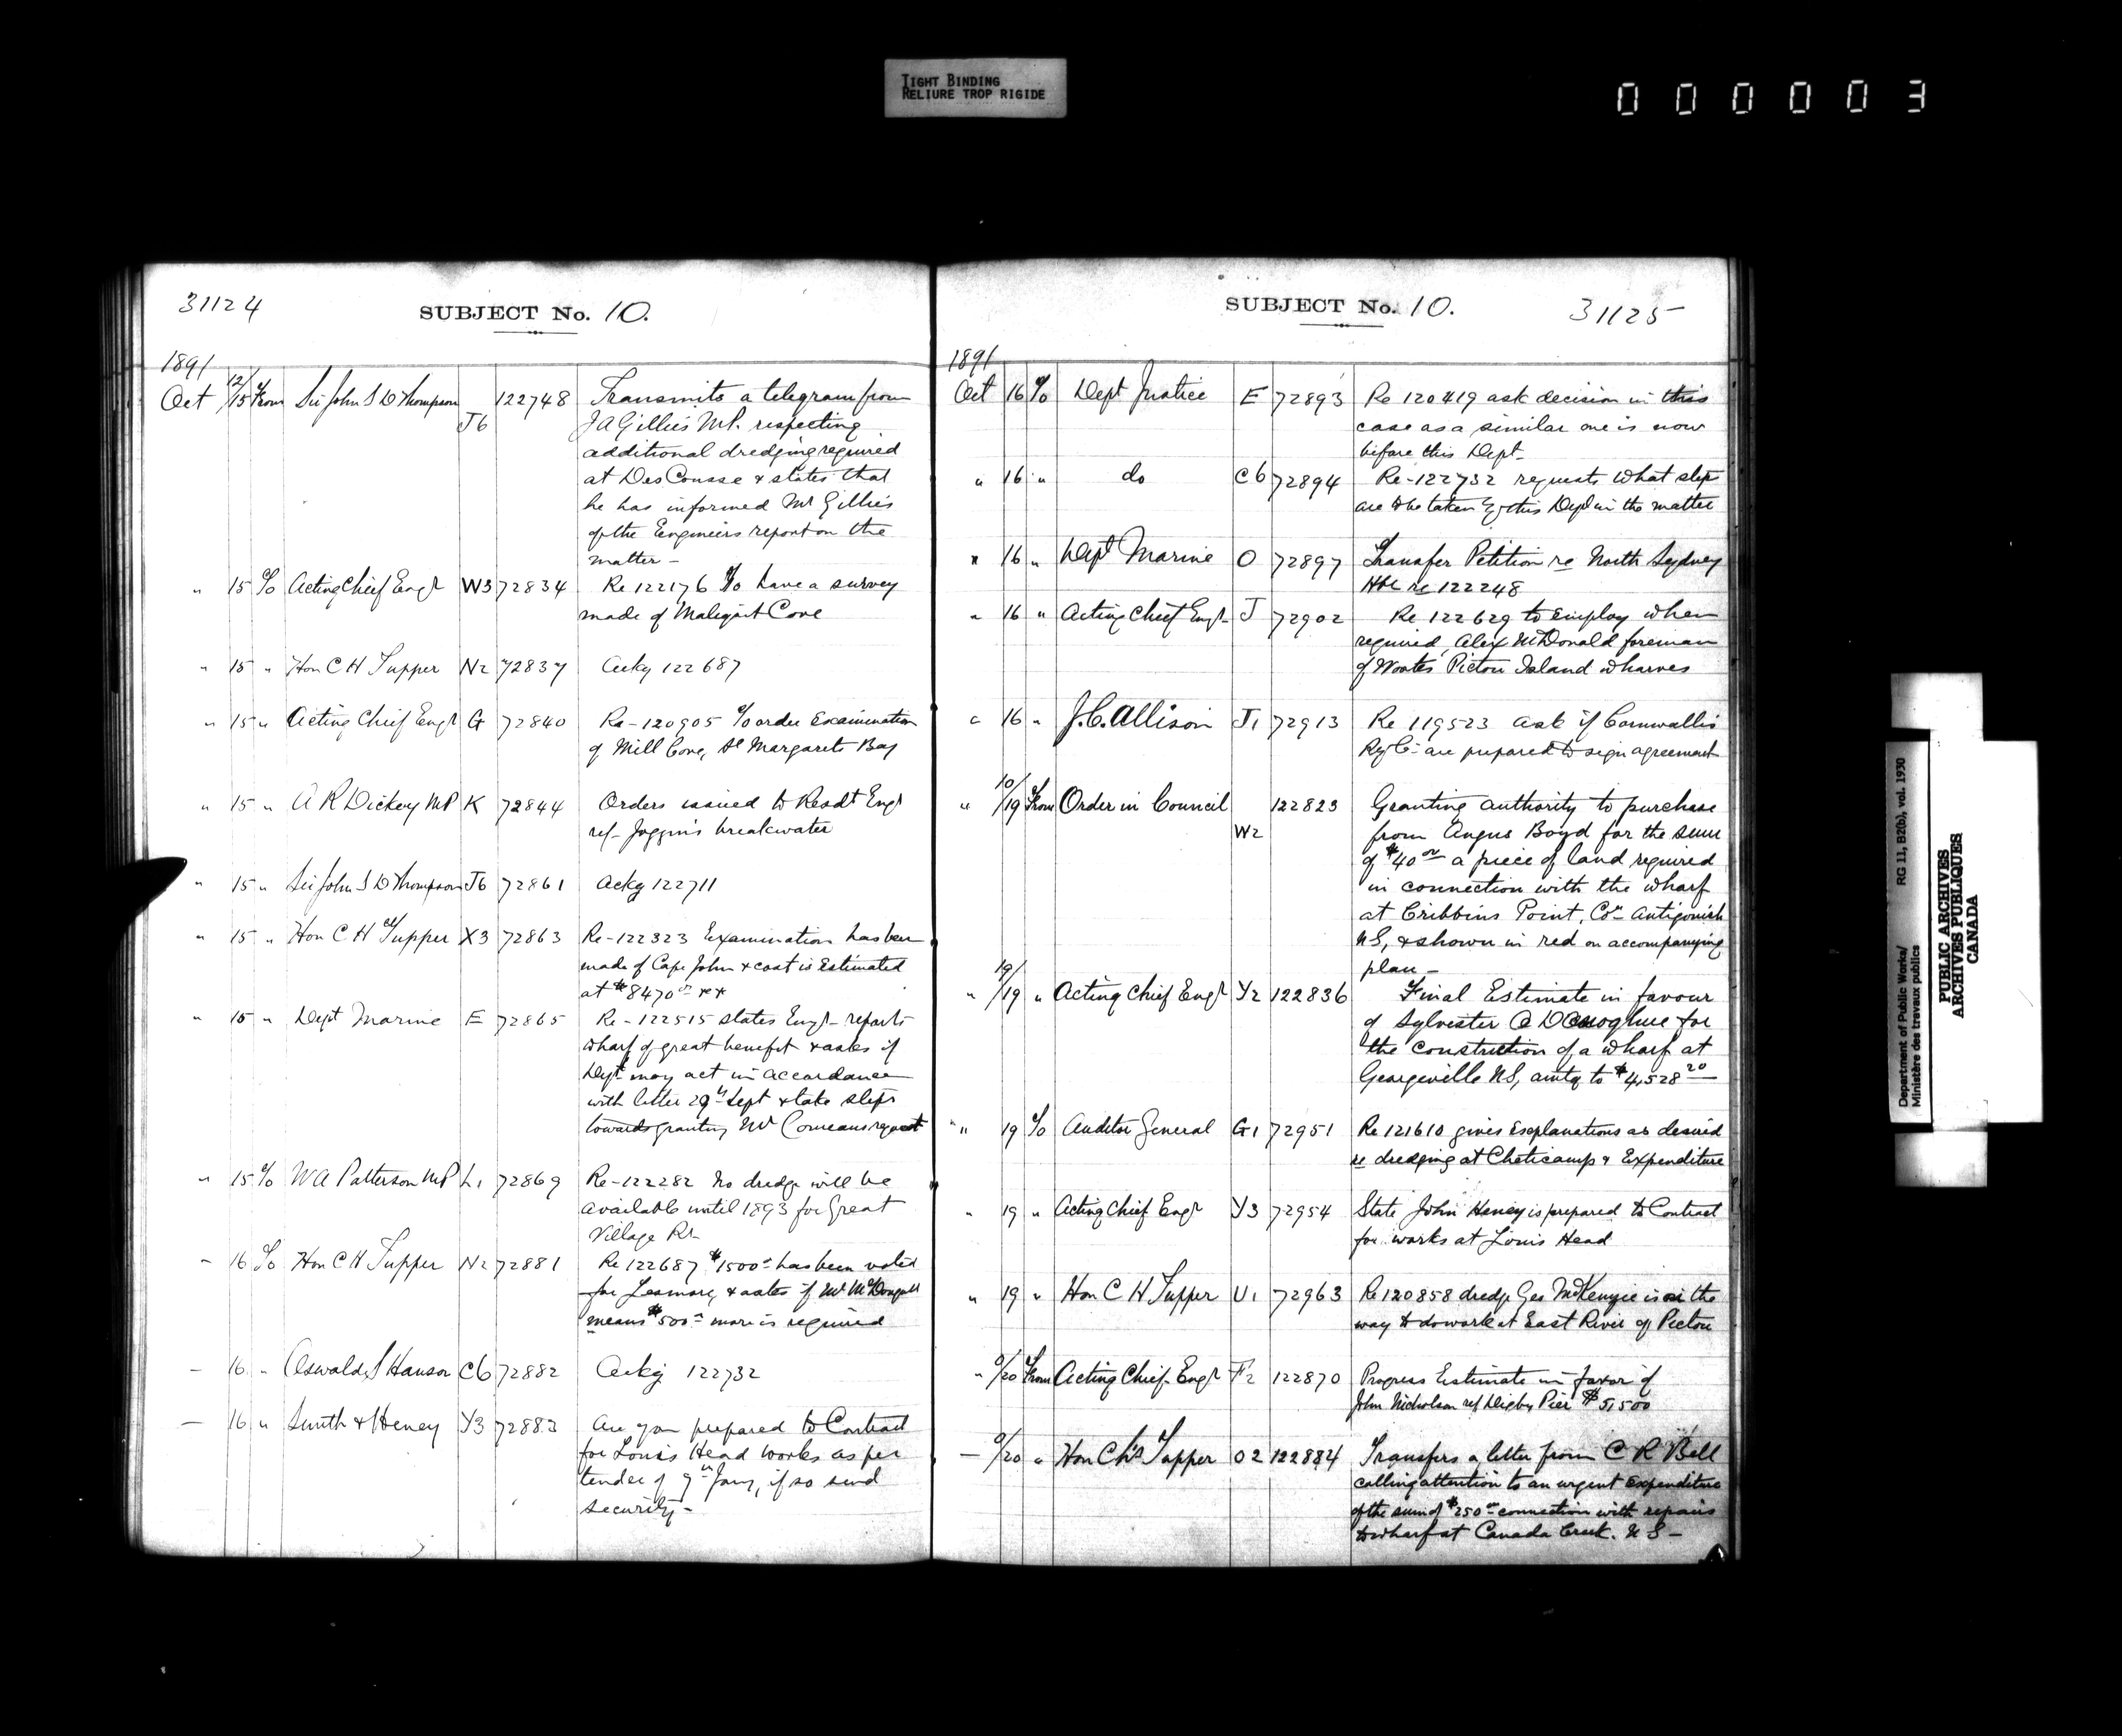 TIGHT BINDING
RELIURE TROP RIGIDE
000003
31124
SUBJECT No. 10.
1891
Oct 12/15 From Sir John S D Thompson J6 122748 Transmits a telegram from
J A Gillies M.P. respecting
additional dredging required
at DesCousse & states that
he has informed Mr Gillies
of the Engineers report on the
matter -
" 15 To Acting Chief Engr W3 72834 Re 122176 To have a survey
made of Malignant Cove
" 15 " Hon C H Tupper N2 72837 Acky 122687
" 15 " Acting Chief Engr G 72840 Re - 120905 To order Examination
of Mill Cove, St Margarets Bay
" 15 " A R Dickey MP K 72844 Orders issued to Resdt Engr
ref - Joggin's breakwater
" 15 " Sir John S D Thompson J6 72861 Acky 122711
" 15 " Hon C H Tupper X3 72863 Re - 122323 Examination has been
made of Cape John & cost is Estimated
at $8470
" 15 " Dept Marine E 72865 Re - 122515 states Engr - reports
wharf of great benefit & asks if
Dept may act in accordance
with letter 29th Sept & take steps
towards granting Mr Comeaus request
" 15 To W A Patterson MP L1 72869 Re - 122282 No dredge will be
available until 1893 for Great
Village Rr -
- 16 To Hon C H Tupper N2 72881 Re 122687 $1500 has been voted
for & asks if Mr McDougall
means $500 more is required
- 16 " Oswald S Hanson C6 72882 Acky 122732
- 16 " Smith & Heney Y3 72883 Are you prepared to Contract
for Louis Head works as per
tender of 9th Jany, if so send
security -
SUBJECT No. 10.
31125
1891
Oct 16 To Dept Justice E 72893 Re 120419 ask decision in this
case as a similar one is now
before this Dept -
" 16 " do C6 72894 Re - 122732 requests what steps
are to be taken by this Dept in the matter
" 16 " Dept Marine O 72897 Transfer Petition re North Sydney
Hbr re 122248
" 16 " Acting Chief Engr - J 72902 Re 122629 to employ when
required, Alex McDonald foreman
of Works Pictou Island wharves
" 16 " J. C. Allison J1 72913 Re 119523 ask if Cornwallis
Ry Co are prepared to sign agreement
" 10/19 From Order in Council W2 122823 Granting authority to purchase
from Angus Boyd for the sum
of $40 00 a piece of land required
in connection with the wharf
at Cribbins Point, Co Antigonish
NS, & shown in red on accompanying
plan -
" 19/19 " Acting Chief Engr Y2 122836 Final Estimate in favour
of Sylvester O'Donoghue for
the construction of a wharf at
Georgeville NS, amtg to $4,528 20
" 19 To Auditor General G1 72951 Re 121610 gives Explanations as desired
re dredging at Cheticamp & Expenditure
" 19 " Acting Chief Engr Y3 72954 State John Heney is prepared to Contract
for works at Louis Head
" 19 " Hon C H Tupper U1 72963 Re 120858 dredge Geo McKenzie is on the
way to do work at East River of Pictou
" 9/20 From Acting Chief Engr F2 122870 Progress Estimate in favor of
John Nicholson ref Digby Pier $5,500
- 9/20 " Hon Chs Tupper O2 122884 Transfers a letter from C R Bell
calling attention to an urgent expenditure
of the sum of $250 connection with repairs
to wharf at Canada Creek. N S -
Department of Public Works/
Ministère des travaux publics
RG 11, B2(b), vol. 1930
PUBLIC ARCHIVES
ARCHIVES PUBLIQUES
CANADA